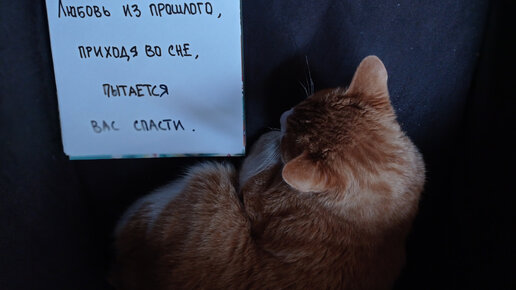 Любовь из прошлого,
приходя во сне,
пытается
вас спасти.